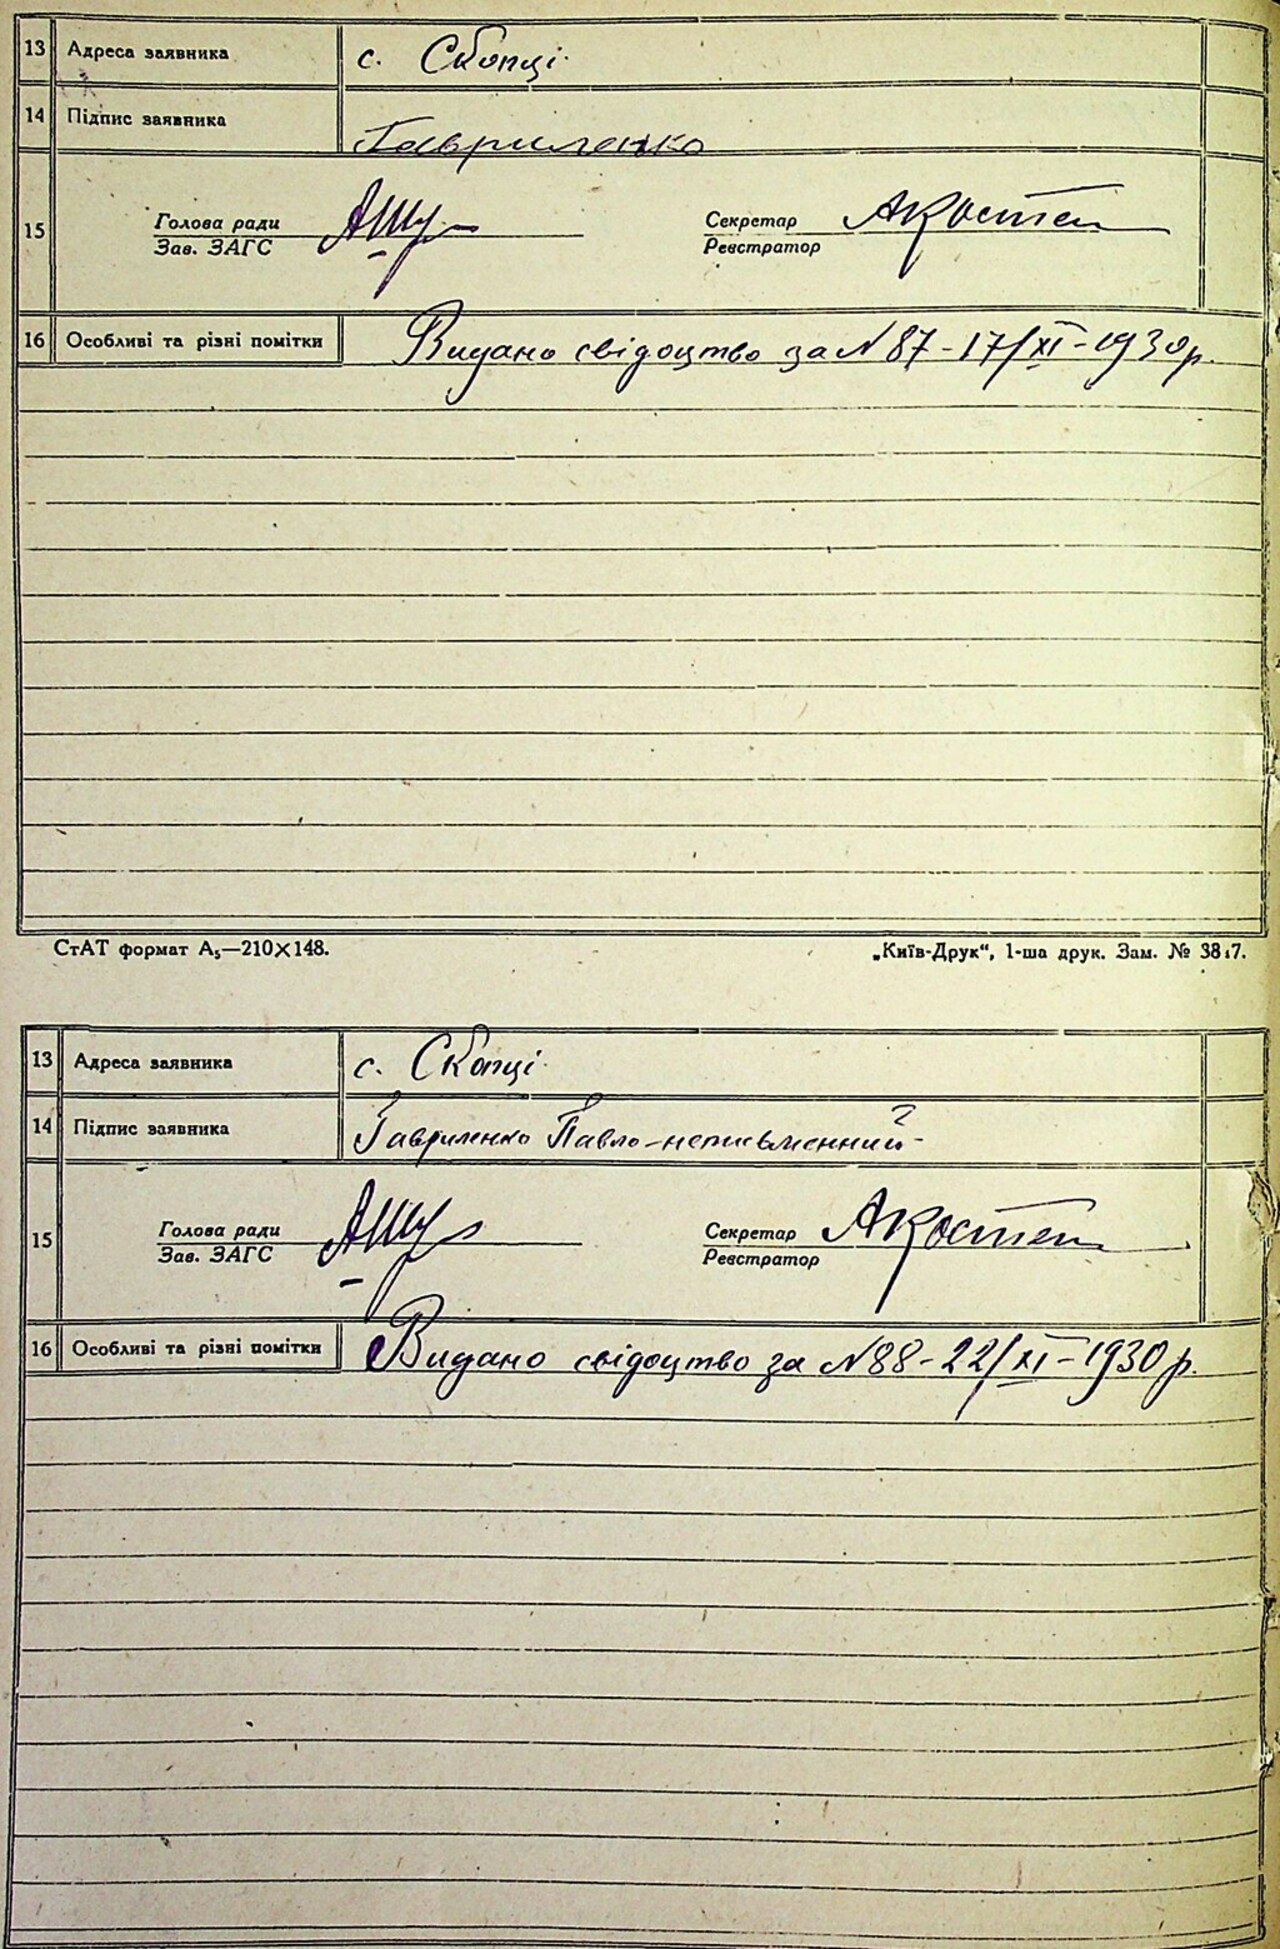 13 Адреса заявника с. Скопці.
14 Підпис заявника Гавриленко
15 Голова ради Секретар АКостен
Зав. ЗАГС Реєстратор
16 Особливі та різні помітки Видано свідоцтво за N 87 - 17/XI - 1930 р.
СтАТ формат А₅—210×148. „Київ-Друк“, 1-ша друк. Зам. №
13 Адреса заявника с. Скопці.
14 Підпис заявника Гавриленко Павло - неписьменний -
15 Голова ради Секретар АКостен
Зав. ЗАГС Реєстратор
16 Особливі та різні помітки Видано свідоцтво за N 88 - 22/XI - 1930 р.